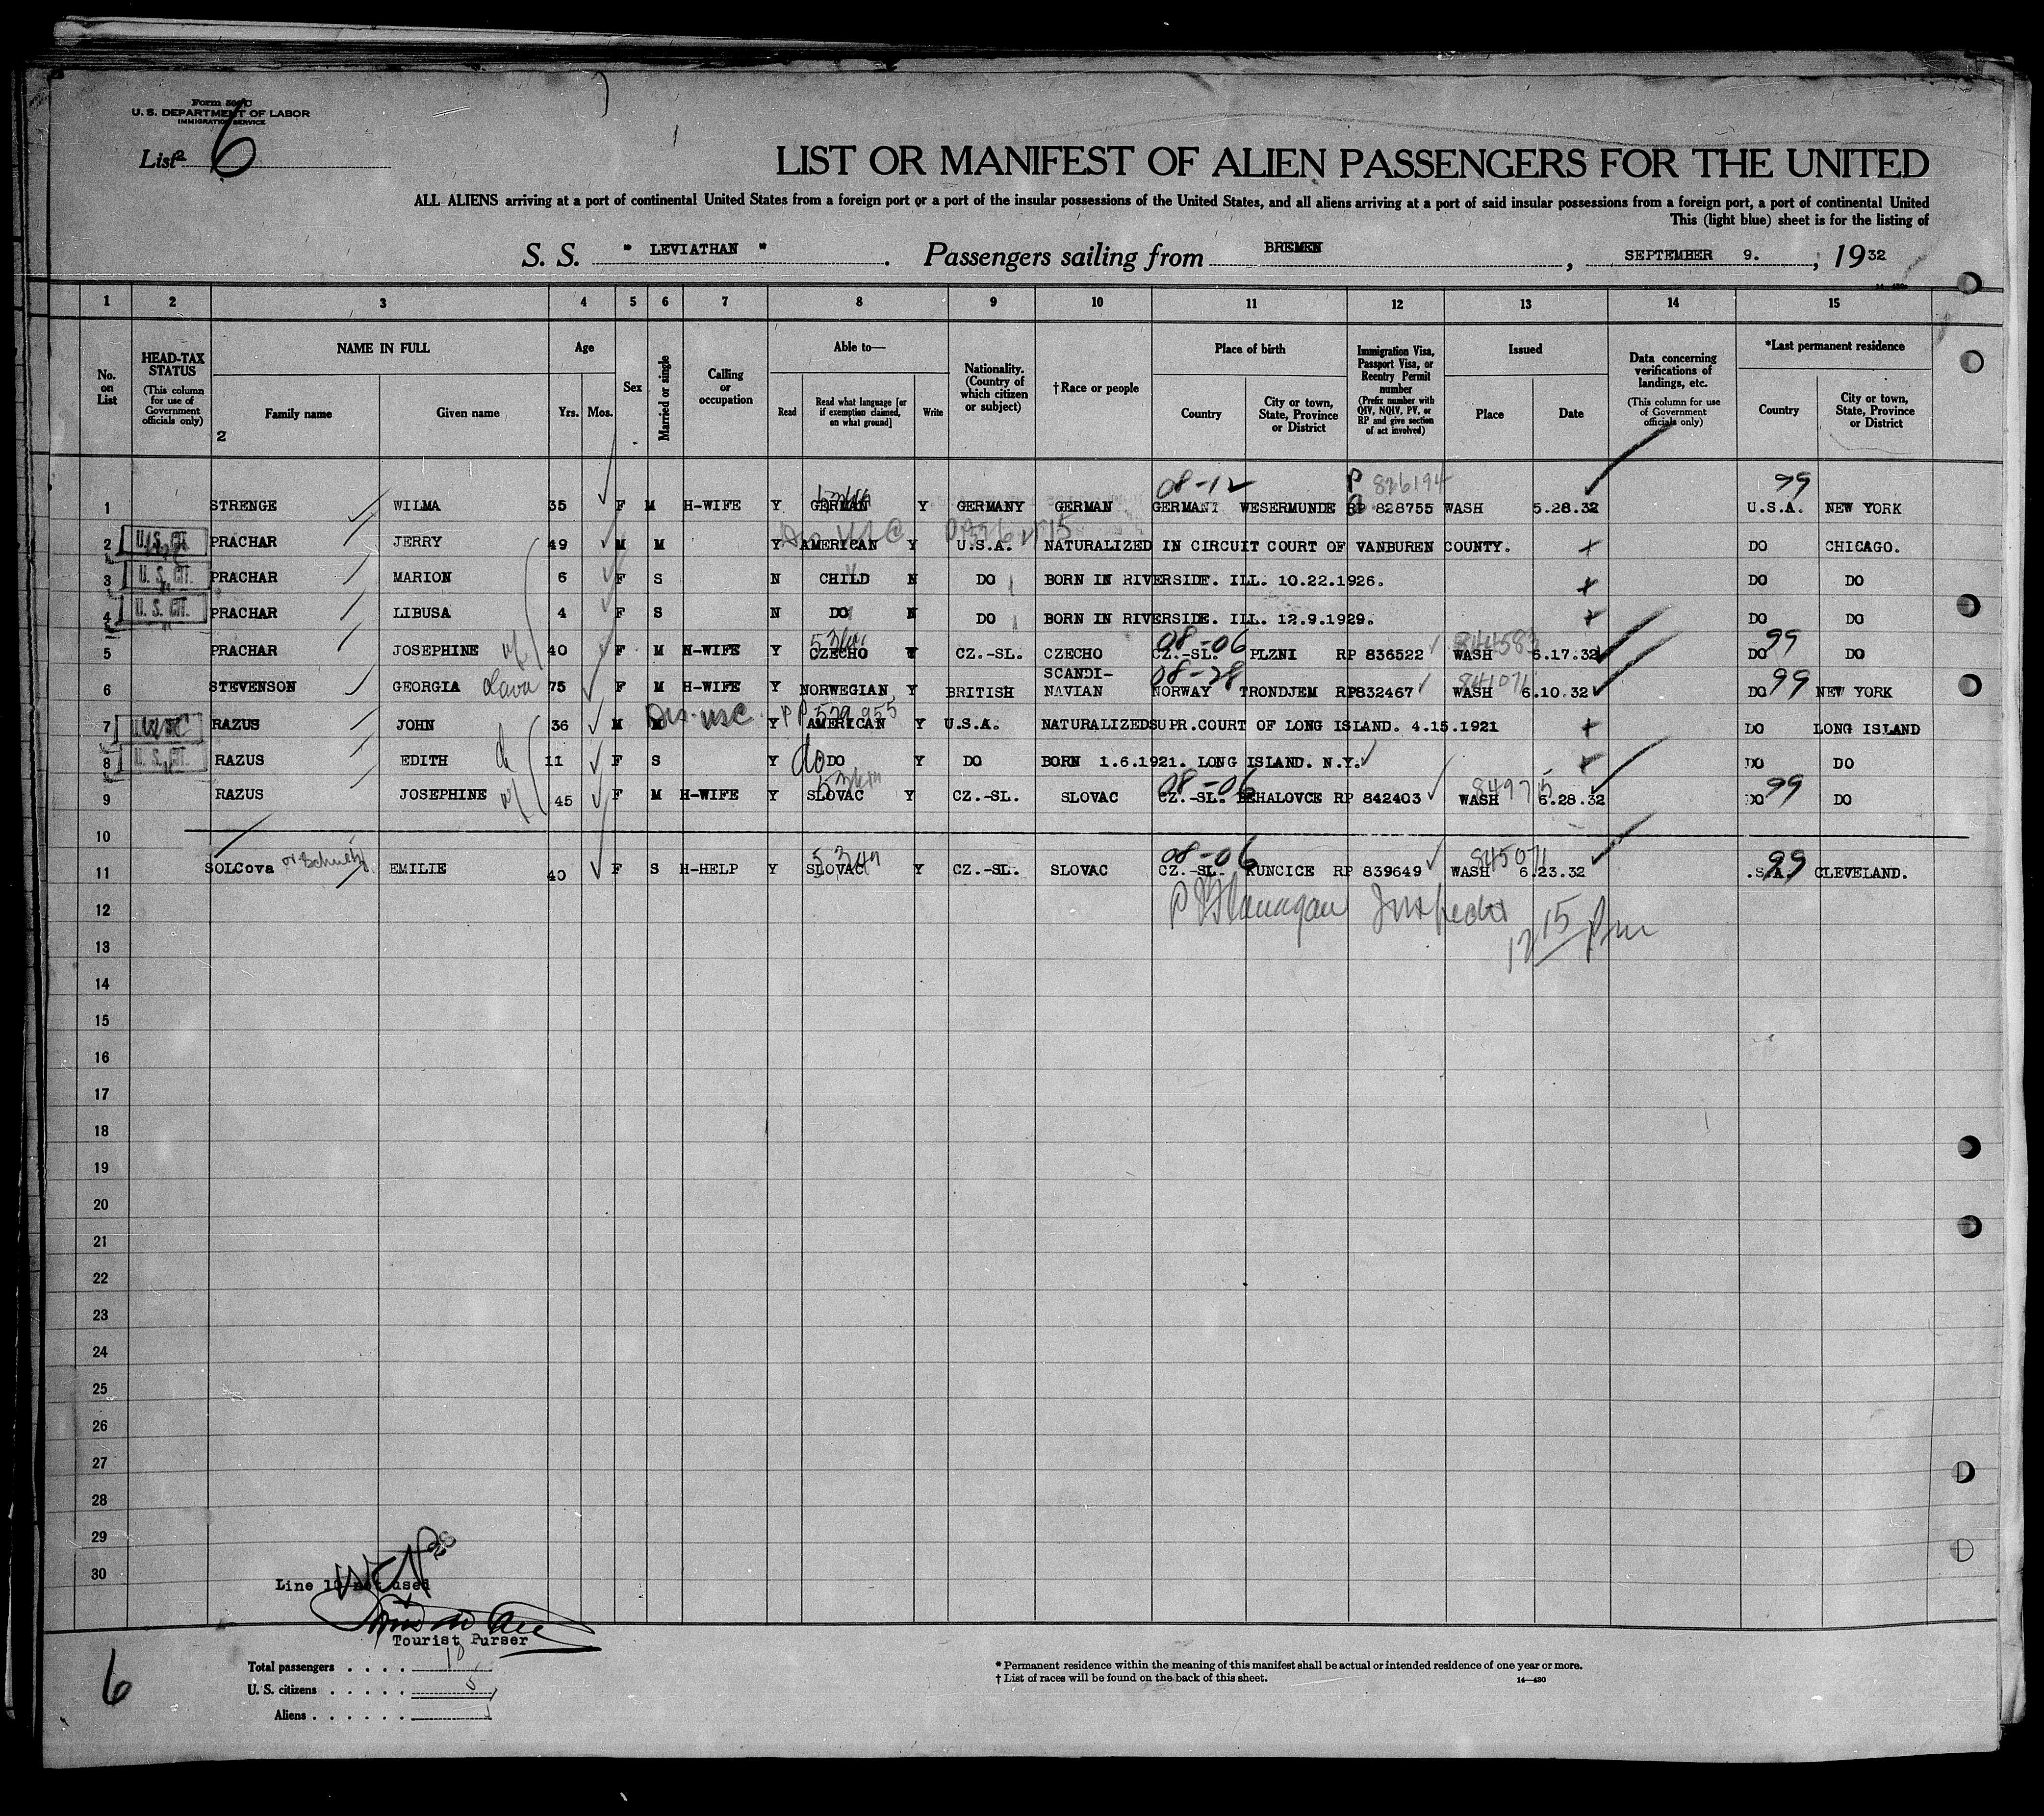 Form 500 C
U. S. DEPARTMENT OF LABOR
IMMIGRATION SERVICE
List 6
LIST OR MANIFEST OF ALIEN PASSENGERS FOR THE UNITED
ALL ALIENS arriving at a port of continental United States from a foreign port or a port of the insular possessions of the United States, and all aliens arriving at a port of said insular possessions from a foreign port, a port of continental United
This (light blue) sheet is for the listing of
S. S. " LEVIATHAN " . Passengers sailing from BREMEN , SEPTEMBER 9. , 19 32
1 2 3 4 5 6 7 8 9 10 11 12 13 14 15
No. on List
HEAD-TAX STATUS (This column for use of Government officials only)
NAME IN FULL Family name Given name
2
Age Yrs. Mos.
Sex
Married or single
Calling or occupation
Able to— Read Read what language [or if exemption claimed, on what ground] Write
Nationality. (Country of which citizen or subject)
†Race or people
Place of birth Country City or town, State, Province or District
Immigration Visa, Passport Visa, or Reentry Permit number (Prefix number with QIV, NQIV, PV, or RP and give section of act involved)
Issued Place Date
Data concerning verifications of landings, etc. (This column for use of Government officials only)
*Last permanent residence Country City or town, State, Province or District
08-12 P 826194 99
1 STRENGE WILMA 35 F M H-WIFE Y GERMAN Y GERMANY GERMAN GERMANY WESERMUNDE RP 828755 WASH 5.28.32 U.S.A. NEW YORK
2 U.S. CIT. PRACHAR JERRY 49 M M Y AMERICAN Y U.S.A. NATURALIZED IN CIRCUIT COURT OF VANBUREN COUNTY. DO CHICAGO.
3 U. S. CIT. PRACHAR MARION 6 F S N CHILD N DO BORN IN RIVERSIDE. ILL. 10.22.1926. DO DO
4 U. S. CIT. PRACHAR LIBUSA 4 F S N DO N DO BORN IN RIVERSIDE. ILL. 12.9.1929. DO DO
08-06 844583 99
5 PRACHAR JOSEPHINE 40 F M H-WIFE Y CZECHO Y CZ.-SL. CZECHO CZ.-SL. PLZNI RP 836522 WASH 6.17.32 DO DO
08-28 841071 99
6 STEVENSON GEORGIA 75 F M H-WIFE Y NORWEGIAN Y BRITISH SCANDI-NAVIAN NORWAY TRONDJEM RP832467 WASH 6.10.32 DO NEW YORK
7 RAZUS JOHN 36 M M Y AMERICAN Y U.S.A. NATURALIZED SUPR.COURT OF LONG ISLAND. 4.15.1921 DO LONG ISLAND
8 U. S. CIT. RAZUS EDITH 11 F S Y do DO Y DO BORN 1.6.1921. LONG ISLAND. N.Y. DO DO
08-06 849715 99
9 RAZUS JOSEPHINE 45 F M H-WIFE Y SLOVAC Y CZ.-SL. SLOVAC CZ.-SL. BEHALOVCE RP 842403 WASH 6.28.32 DO DO
10
08-06 845071 99
11 SOLCova EMILIE 40 F S H-HELP Y SLOVAC Y CZ.-SL. SLOVAC CZ.-SL. KUNCICE RP 839649 WASH 6.23.32 .S.A. CLEVELAND.
12 Flanagan Inspector
13 12 15 Pm
14
15
16
17
18
19
20
21
22
23
24
25
26
27
28
29
30
Line 10 not used
Tourist Purser
Total passengers . . . . 10
U. S. citizens . . . . . 5
Aliens . . . . . .
6
* Permanent residence within the meaning of this manifest shall be actual or intended residence of one year or more.
† List of races will be found on the back of this sheet.
14—430